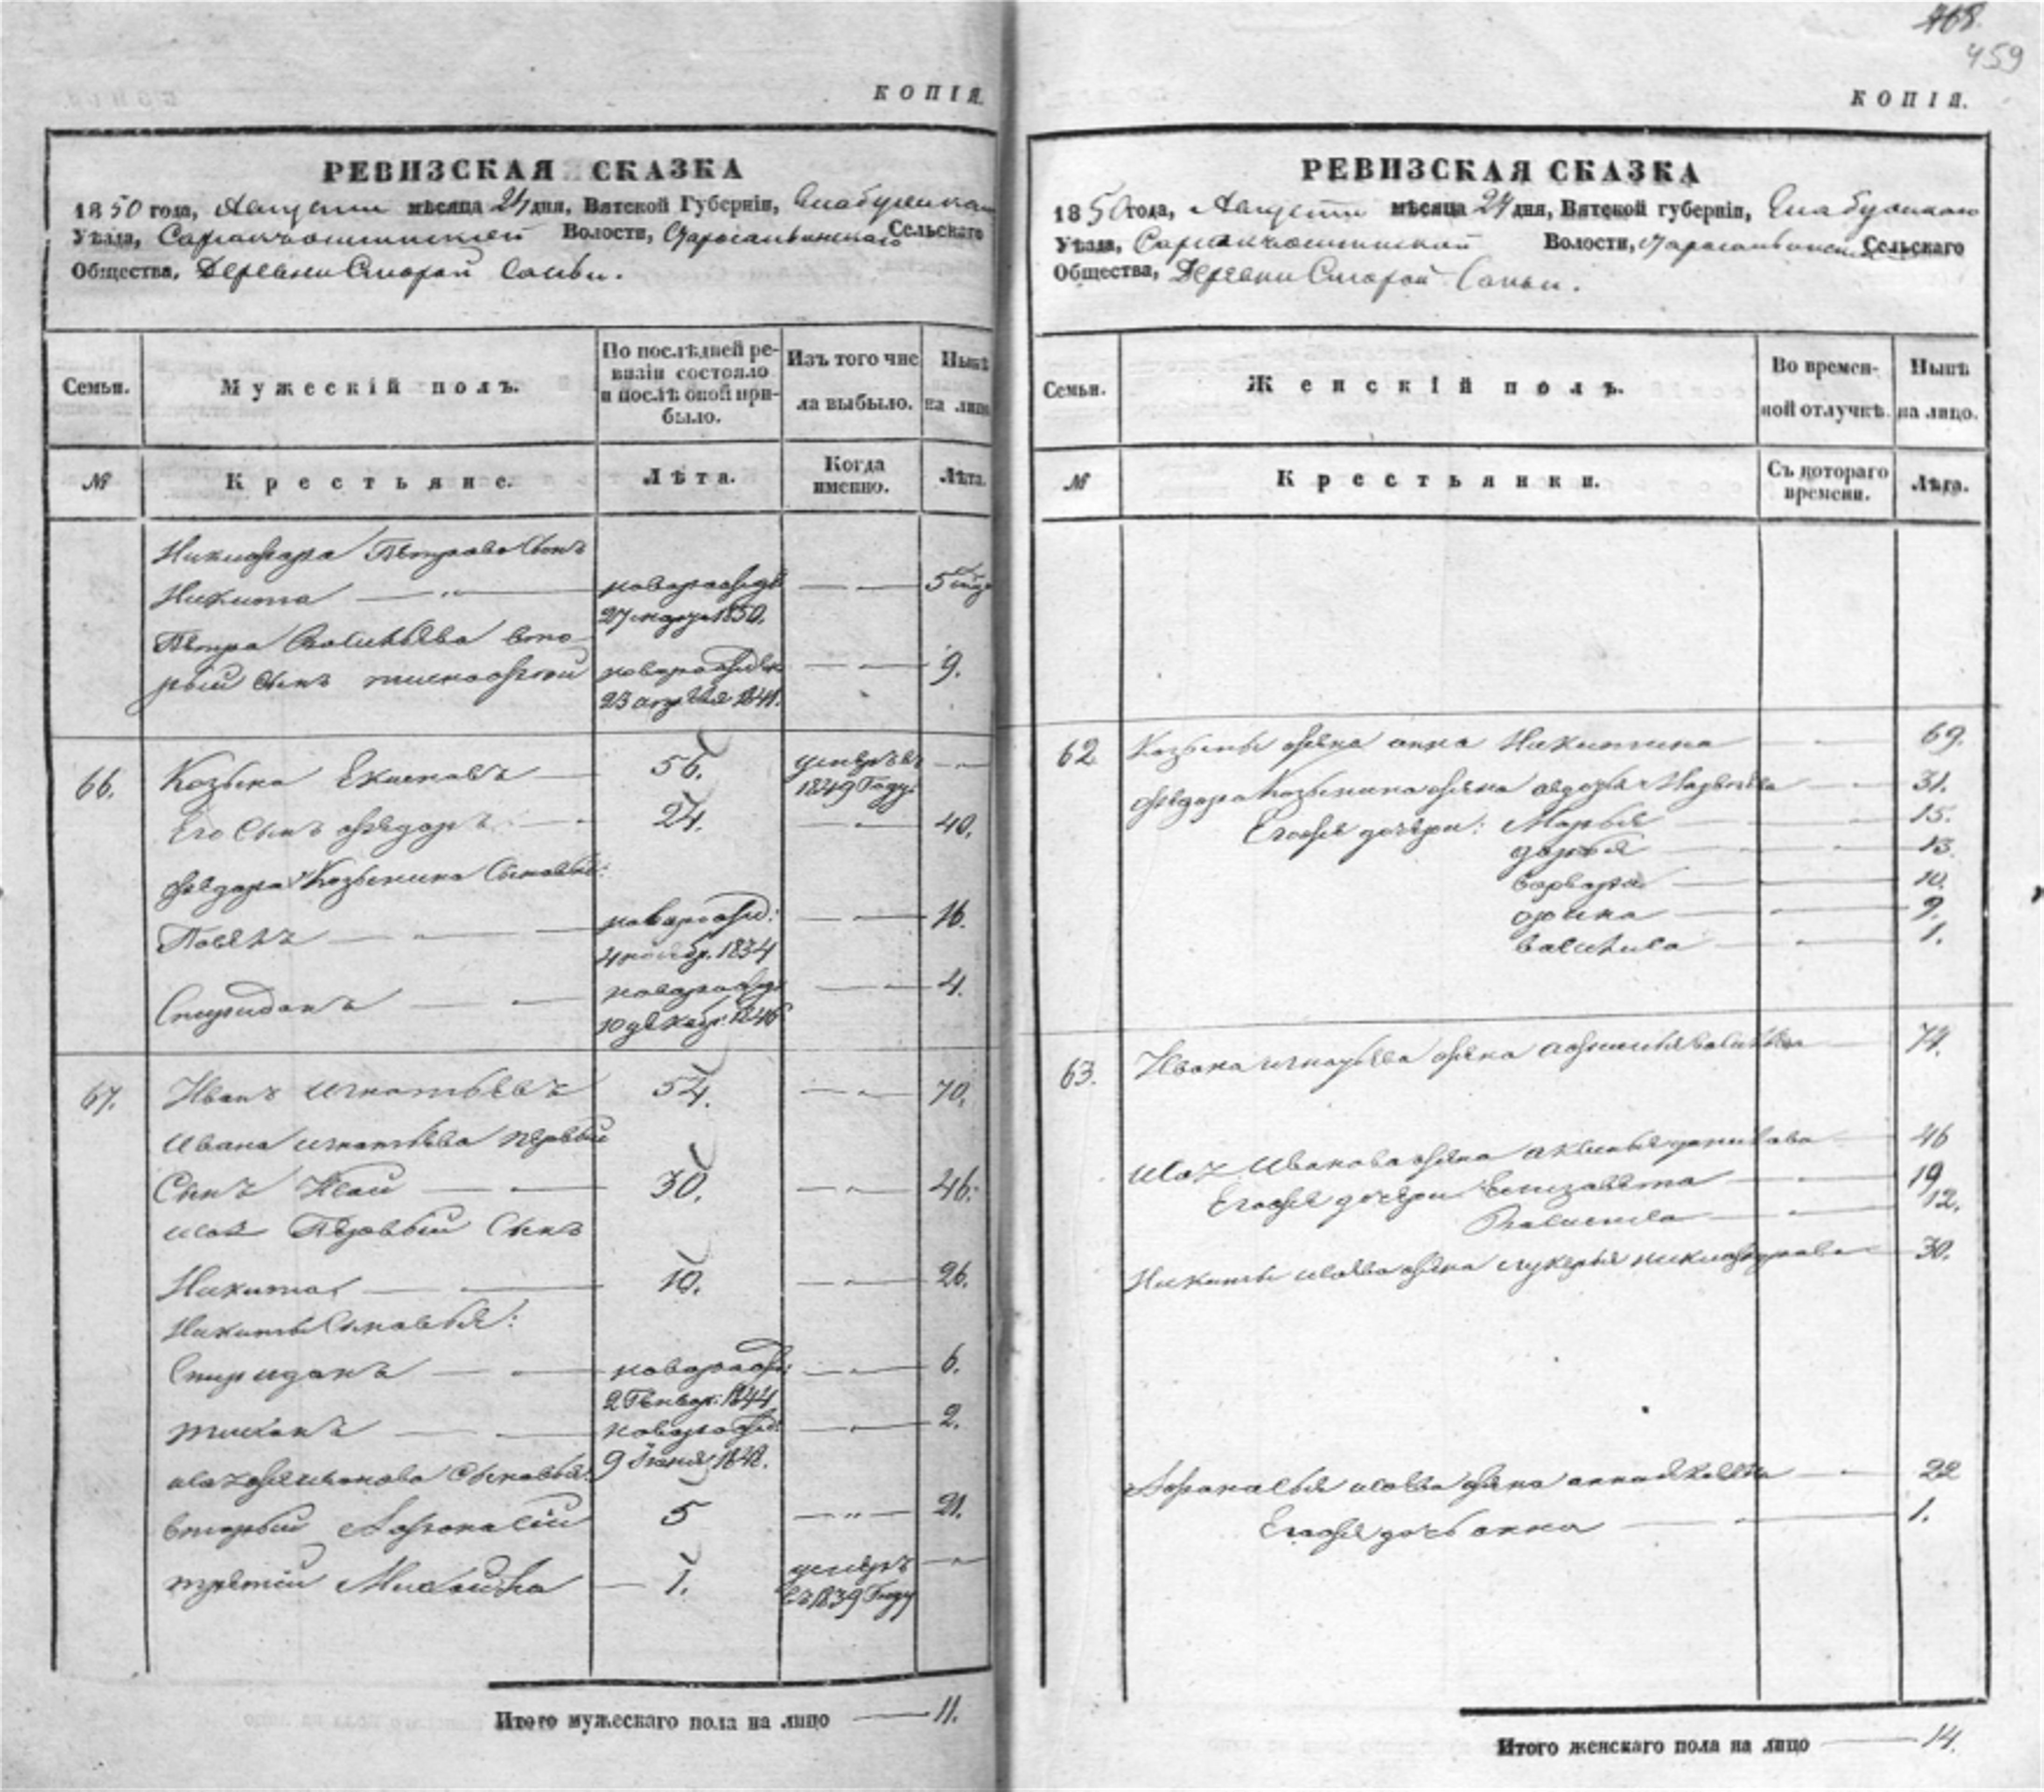 468.
459
КОПІЯ.
РЕВИЗСКАЯ СКАЗКА
1850 года, Августа мѣсяца 24 дня, Вятской Губерніи, Елабужскаго
Уѣзда, Волости, Сельскаго
Общества, Деревни Старой Сальи.
Семьи.
Мужескій полъ.
По послѣдней ре-
визіи состояло
и послѣ оной при-
было.
Изъ того чис
ла выбыло.
Нынѣ
на лицо
№
Крестьяне.
Лѣта.
Когда
именно.
Лѣта.
Никифора Петрова Сынъ
Никита — „ — новорожд — „ — 5 мѣс
27 марта 1850.
Петра Васильева вто-
рый сынъ Тимофей новорожден — „ — 9.
23 апрѣля 1841.
66. Козьма Екимовъ — 56. умеръ въ — „ —
1849 Году.
Его Сынъ Ѳедоръ — „ — 24. — „ — 40.
Ѳедора Козьмина Сыновья:
Павелъ — „ — новорожд: — „ — 16.
4 ноябр. 1834
Спиридонъ — „ — новорожд — „ — 4.
10 декабр. 1846
67. Иванъ Игнатьевъ 54. — „ — 70.
Ивана Игнатьева первый
Сынъ Исай — „ — 30. — „ — 46.
Исая Первый Сынъ
Никита — 10. — „ — 26.
Никиты Сыновья:
Спиридонъ — „ — новорожд: — „ — 6.
2 Генвар. 1844
Тихонъ — „ — новорожд. — „ — 2.
9 Іюня 1848.
Иванова Сыновья:
вторый Афонасій 5 — „ — 21.
третій Михайла — 1. умеръ — „ —
въ 1839 Году
Итого мужескаго пола на лицо — 11.
КОПІЯ.
РЕВИЗСКАЯ СКАЗКА
1850 года, Августа мѣсяца 24 дня, Вятской губерніи, Елабужскаго
Уѣзда, Волости, Сельскаго
Общества, Деревни Старой Сальи.
Семьи.
Женскій полъ.
Во времен-
ной отлучкѣ.
Нынѣ
на лицо.
№
Крестьянки.
Съ котораго
времени.
Лѣта.
62. Козьмы жена Анна Никитина — „ — 69.
Ѳедора Козьмина жена Авдотья — „ — 31.
Егоже дочери: Марья — „ — 15.
Дарья — „ — 13.
Варвара — „ — 10.
— „ — 9.
Василиса — „ — 1.
63. Ивана Игнатьева жена Васильева — 74.
Исая Иванова жена Акилина Данилова — 46
Егоже дочери Елизавета — „ — 19
Василиса — „ — 12.
Никиты Исаева жена Лукерья Никифорова — 30.
Афонасья Исаева жена Анна Яковлева — „ — 22
Егоже дочь Анна — „ — 1.
Итого женскаго пола на лицо — 14.